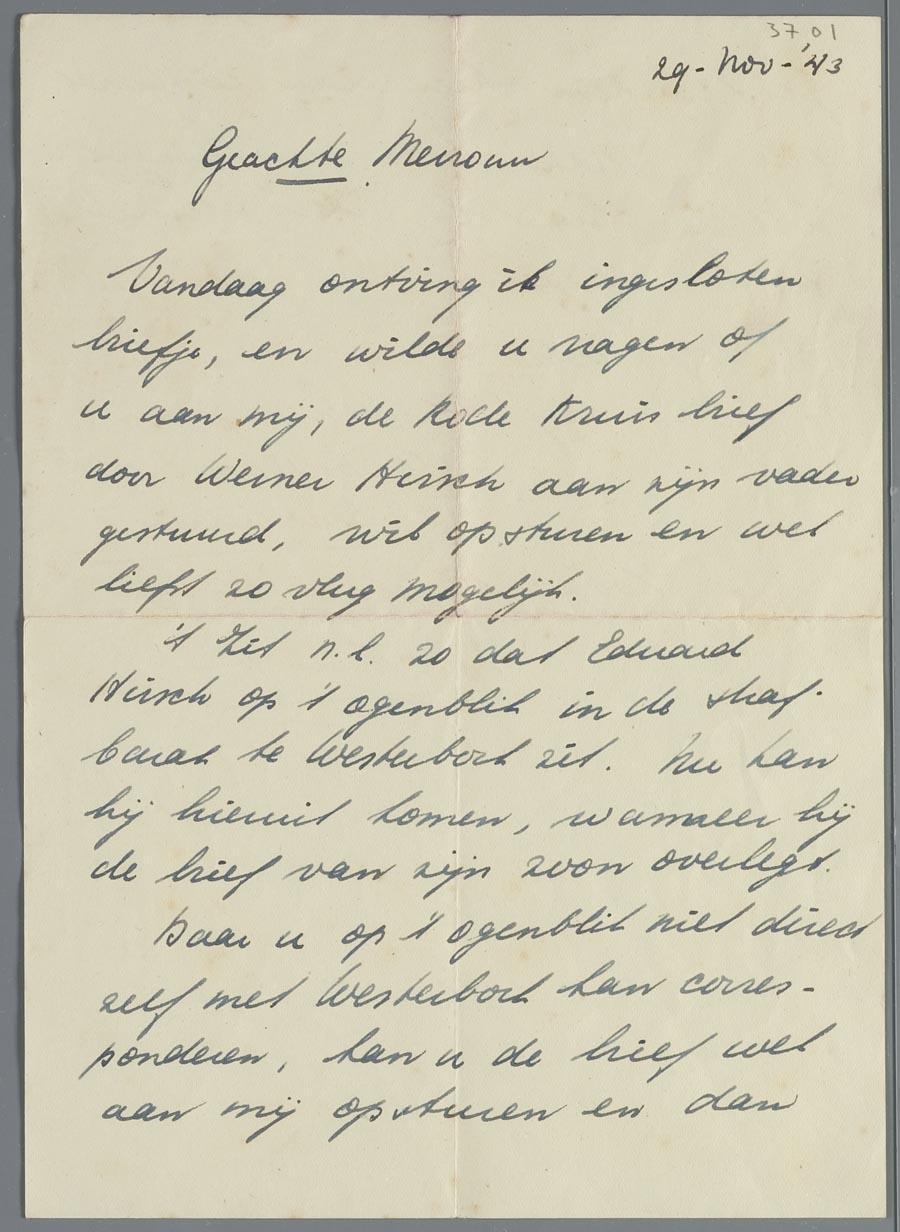 3701
29-Nov-'43
Geachte Mevrouw
Vandaag ontving ik ingesloten
briefje, en wilde u vragen of
u aan mij, de Rode Kruis brief
door Werner Hirsch aan zijn vader
gestuurd, wil opsturen en wel
liefst zo vlug mogelijk.
't Zit n.l. zo dat Eduard
Hirsch op 't ogenblik in de straf-
barak te Westerbork zit. Nu kan
hij hieruit komen, wanneer hij
de brief van zijn zoon overlegt.
Daar u op 't ogenblik niet direct
zelf met Westerbork kan corres-
ponderen, kan u de brief wel
aan mij opsturen en dan